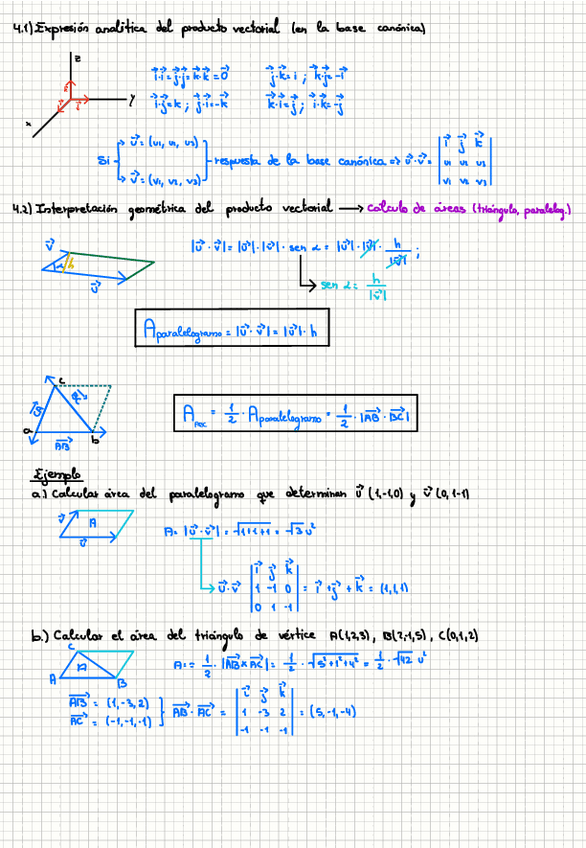 4.1) Expresión analítica del producto vectorial (en la base canónica)
z
y
x
i⃗·i⃗=j⃗·j⃗=k⃗·k⃗=0⃗ j⃗·k⃗=i ; k⃗·j⃗=-i⃗
i⃗·j⃗=k ; j⃗·i⃗=-k⃗ k⃗·i⃗=j⃗ ; i⃗·k⃗=-j⃗
Si u⃗=(u1, u1, u3)
v⃗=(v1, v2, v3)
respuesta de la base canónica => u⃗·v⃗ = | i⃗ j⃗ k⃗ |
| u1 u2 u3 |
| v1 v2 v3 |
4.2) Interpretación geométrica del producto vectorial → Cálculo de áreas (triángulo, paralelog.)
v⃗
α h
u⃗
|u⃗·v⃗|=|u⃗|·|v⃗|· sen α = |u⃗|·|v⃗|· h/|v⃗| ;
sen α = h/|v⃗|
A paralelogramo = |u⃗·v⃗|=|u⃗|· h
c
a b
AB⃗
A = 1/2 · A paralelogramo = 1/2 · |AB⃗ · BC⃗|
Ejemplo
a.) Calcular área del paralelogramo que determinan u⃗ (1,-1,0) y v⃗ (0,1-1)
v⃗ A
u⃗
A= |u⃗·v⃗| = √1+1+1 = √3 u²
u⃗·v⃗ | i⃗ j⃗ k⃗ |
| 1 -1 0 | = i⃗ + j⃗ + k⃗ = (1,1,1)
| 0 1 -1 |
b.) Calcular el área del triángulo de vértice A(1,2,3), B(2,-1,5), C(0,1,2)
C
A
A B
A = 1/2 · |AB⃗ x AC⃗| = 1/2 · √5²+1²+4² = 1/2 · √42 u²
AB⃗ = (1,-3,2)
AC⃗ = (-1,-1,-1)
AB⃗ · AC⃗ = | i⃗ j⃗ k⃗ |
| 1 -3 2 | = (5,-1,-4)
| -1 -1 -1 |